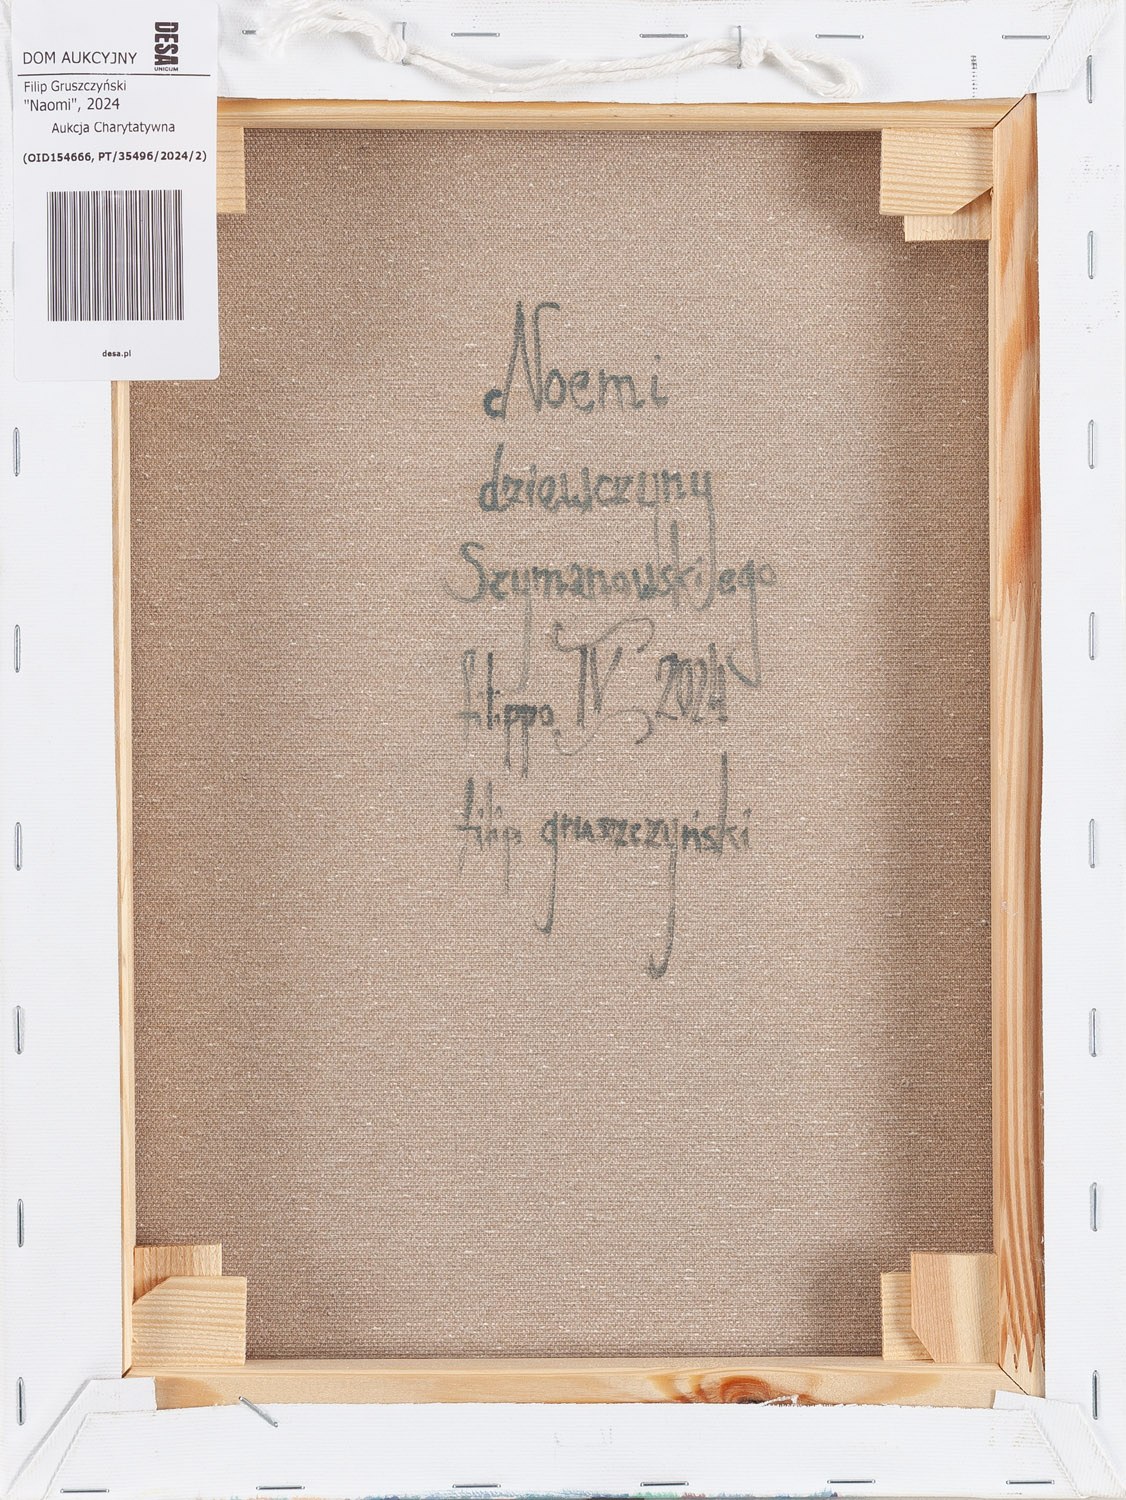 DOM AUKCYJNY
DESA
UNICUM
Filip Gruszczyński
"Naomi", 2024
Aukcja Charytatywna
(OID154666, PT/35496/2024/2)
desa.pl
Noemi
dziewczyny
Szymanowskiego
filippo IV 2024
filip gruszczyński